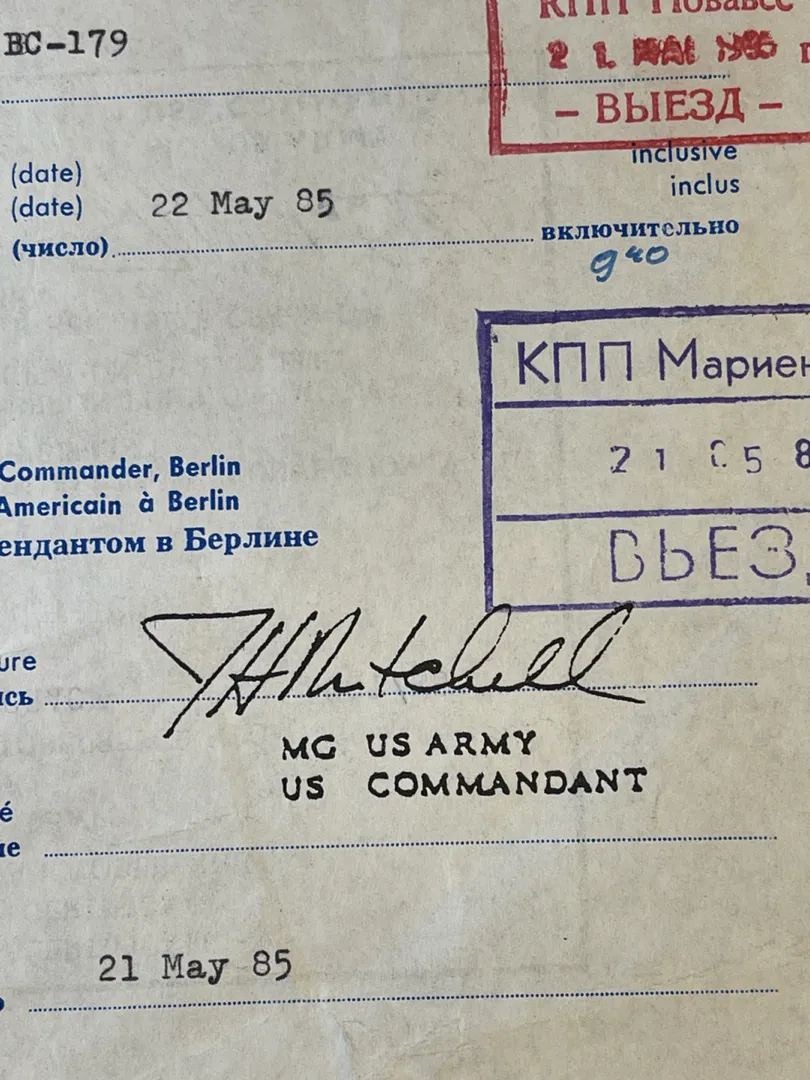 BC-179
КПП
21 MAI 1985
– ВЫЕЗД –
(date) inclusive
(date) 22 May 85 inclus
(число) включительно
КПП Мариен
21 05 8
ВЪЕЗ
Commander, Berlin
Americain à Berlin
ендантом в Берлине
ure
ись
JH Mitchell
MG US ARMY
US COMMANDANT
é
ie
21 May 85